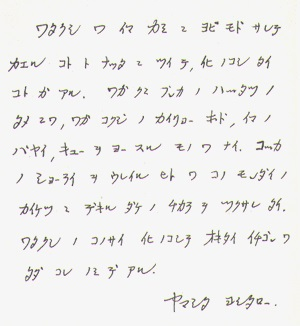 ワタクシ ワ イマ カミ ニ ヨビ モド サレテ
カエル コト ト ナッタ ニ ツイテ, 化ノコシ タイ
コト ガ アル. ワガ クニ ブンカ ノ ハッタツ ノ
タメ ニワ, ワガ コクジ ノ カイリョー ホド, イマ ノ
バヤイ, キューヲ ヨースル モノ ワ ナイ. コッカ
ノ ショーライ ヲ ウレイル ヒト ワ コノ モンダイ ノ
カイケツ ニ デキル ダケ ノ チカラ ヲ ツクサレ タイ.
ワタクシ ノ コノサイ 化ノコシテ オキタイ イチゴン ワ
タダ コレ ノミ デ アル.
ヤマシタ ヨシタロー.